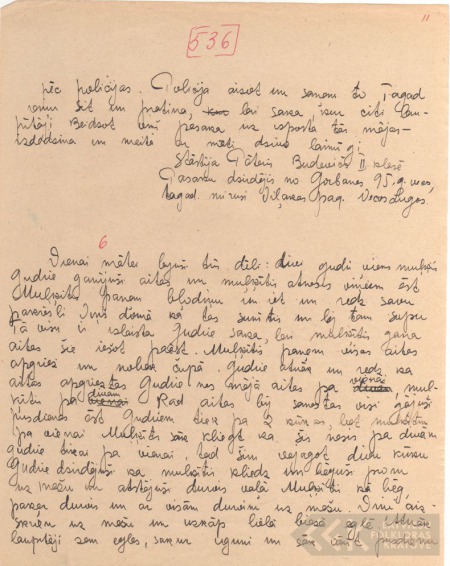 11
536
pēc policijas. Policija aiziet un saņem to. Tagad
viņu sit un pratina, lai saka kur citi lau-
pītāji. Beidzot viņš pasaka uz izposta tās mājas
izdodzina un meitu ar māti dzīvo laimīgi
Stāstīja Pēteris Budevičs II klasē
Pasaku dzirdējis no Gorbanes 95 g. vecas,
tagad mirusi Viļakas pag. Vecos Lugos.
6
Vienai mātei bijuši trīs dēli: divi gudri viens muļķis
Gudrie ganījuši aitas un muļķītis atnesis viņiem ēst
Muļķītis paņem bļodiņu un iet un redz savu
pakrēsli. Viņš domā ka tas sunītis un lej tam supu
Tā visu izlaista. Gudrie saka, lai muļķītis gana
aitas šie iešot paēst. Muļķītis paņem visas aitas
apgriež un noliek čupā. Gudrie atnāk un redz ka
aitas apgrieztas Gudrie nes mājā aitas pa vienai, muļ-
ķītis pa divām. Kad aitas bij sanestas visi gājuši
pusdienas ēst Gudriem tiek pa 2 kūkas, bet muļķītim
pa vienai Muļķītis sāk kliegt ka šis nesis pa divām
gudrie tikai pa vienai, tad šim vajagot divu kuku
Gudrie dzirdējuši ka muļķītis kliedz un bēguši prom
uz mežu un atstājuši durvis vaļā Muļķītis kā bēg
paķer durvis un ar visām durvīm uz mežu. Viņi aiz-
skrien uz mežu un uzkāp lielā biezā eglē. Atnāk
laupītāji zem egles, sakur uguni un sāk vārīt pusdienu
LATVIEŠU
FOLKLORAS
KRĀTUVE